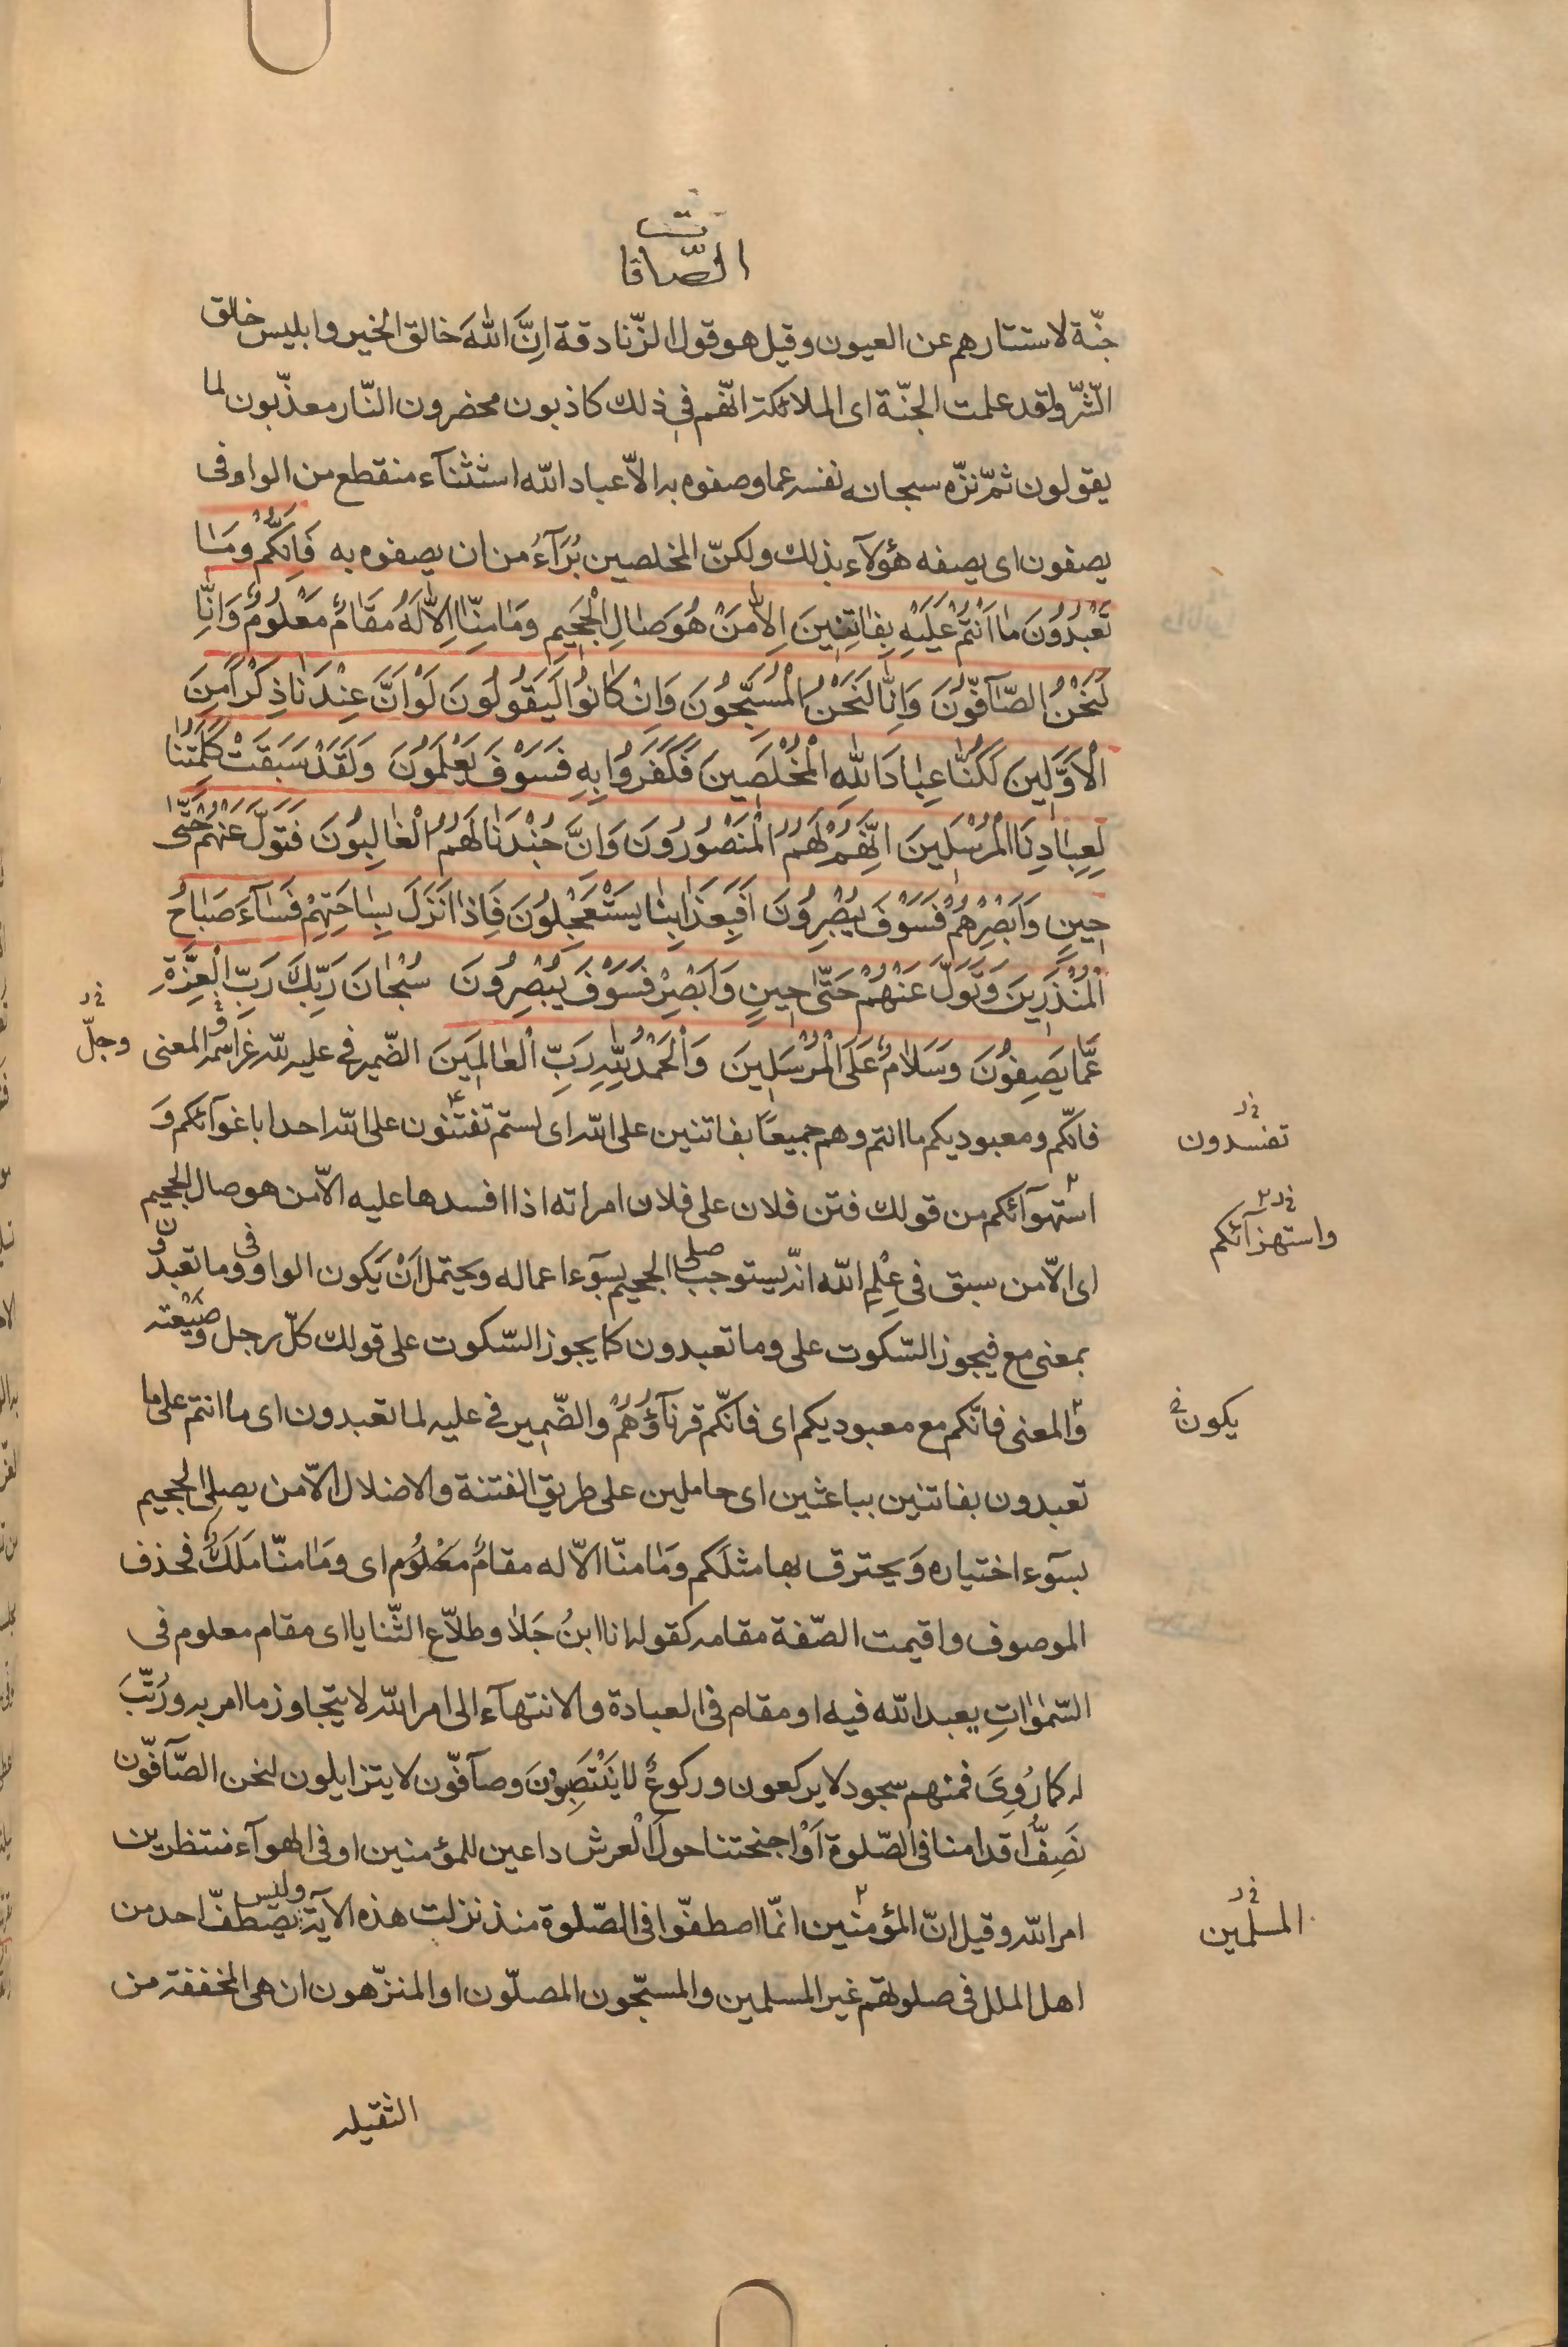 الصّافات
جنّة لاستتارهم عن العيون وقيل هو قول الزّنادقة اِنَّ اللهَ خالق الخير وابليس خالق
الشّرّ ولقد علمت الجنّة اى الملائكة انّهم فى ذلك كاذبون محضرون النّار معذّبون لما
يقولون ثمّ نزّه سبحانه نفسه عما وصفوه به الاّ عباد الله استثنآء منقطع من الواو فى
يصفون اى يصفه هؤلآء بذلك ولكنّ المخلصين بُرَآءُ من ان يصفوه به فَاِنَّكُمْ وَمَا
تَعْبُدُونَ مٰا اَنْتُمْ عَلَيْهِ بِفٰاتِنِينَ اِلاّٰ مَنْ هُوَ صٰالِ الْجَحِيمِ وَمٰا مِنّٰا اِلاّٰ لَهُ مَقٰامٌ مَعْلُومٌ وَاِنّٰا
لَنَحْنُ الصّٰآفّوُنَ وَاِنّٰا لَنَحْنُ الْمُسَبِّحُونَ وَاِنْ كٰانُوا لَيَقُولُونَ لَوْ اَنَّ عِنْدَنٰا ذِكْراً مِنَ
الْاَوَّلِينَ لَكُنّٰا عِبٰادَ اللهِ الْمُخْلَصِينَ فَكَفَرُوا بِهِ فَسَوْفَ يَعْلَمُونَ وَلَقَدْ سَبَقَتْ كَلِمَتُنٰا
لِعِبٰادِنَا الْمُرْسَلِينَ اِنَّهُمْ لَهُمُ الْمَنْصُورُونَ وَاِنَّ جُنْدَنٰا لَهُمُ الْغٰالِبُونَ فَتَوَلَّ عَنْهُمْ حَتّٰى
حِينٍ وَاَبْصِرْهُمْ فَسَوْفَ يُبْصِرُونَ اَفَبِعَذٰابِنٰا يَسْتَعْجِلُونَ فَاِذٰا نَزَلَ بِسٰاحَتِهِمْ فَسٰآءَ صَبٰاحُ
الْمُنْذَرِينَ وَتَوَلَّ عَنْهُمْ حَتّٰى حِينٍ وَاَبْصِرْ فَسَوْفَ يُبْصِرُونَ سُبْحٰانَ رَبِّكَ رَبِّ الْعِزَّةِ
عَمّٰا يَصِفُونَ وَسَلاٰمٌ عَلَى الْمُرْسَلِينَ وَالْحَمْدُ لِلّٰهِ رَبِّ الْعٰالَمِينَ الضّمير فى عليه للّه عزّ اسمه المعنى
وجلّ
فانّكم ومعبوديكم ما انتم وهم جميعًا بفاتنين على الله اى لستم تفتنون على الله احدا باغوآئكم وَ
تفسدون
استهوآئكم من قولك فتن فلان على فلان امراته اذا افسدها عليه الاّ من هو صال الجحيم
واستهزآئكم
اى الاّ من سبق فى عِلْمِ الله انّه يستوجب صلى الجحيم بسوٓء اعماله ويحتمل اَنْ يَكون الواو فى وما تعبدون
بمعنى مع فيجوز السّكوت على وما تعبدون كما يجوز السّكوت على قولك كلّ رجل وضَيْعته
وَالمعنى فانّكم مع معبوديكم اى فانّكم قرنآؤُهُمْ والضّمير فى عليه لما تعبدون اى ما انتم على ما
يكون
تعبدون بفاتنين بباعثين اى حاملين على طريق الفتنة والاضلال الاّ من يصلى الجحيم
بسوٓء اختياره وَيحترق بها مثلَكم وَمٰا منّا الاّ له مقامٌ معْلُوم اى وَمٰا منّا مَلَكٌ فحذف
الموصوف واقيمت الصّفة مقامه كقوله انا ابنُ جَلاٰ وطلاّع الثّنايا اى مقام معلوم فى
السّمٰوٰاتِ يعبد الله فيه او مقام فى العبادة والانتهآء الى امر الله لا يتجاوز ما امر به ورُتّبَ
له كما رُوِىَ فمنهم سجود لا يركعون وركوعٌ لا يَنْتَصِبُونَ وصآفّون لا يتزايلون لنحن الصّآفّون
نَصِفُّ اقدامنا فى الصّلوة اَوْ اجنحتنا حول الْعرش داعين للمؤمنين او فى الهوآء منتظرين
امر الله وقيل انّ المؤمنين انّما اصطفّوا فى الصّلوة منذ نزلت هذه الآية وليس يصطفّ احد من
المسلمين
اهل الملل فى صلوتهم غير المسلمين والمسبّحون المصلّون او المنزّهون ان هى المخففة من
الثقيله